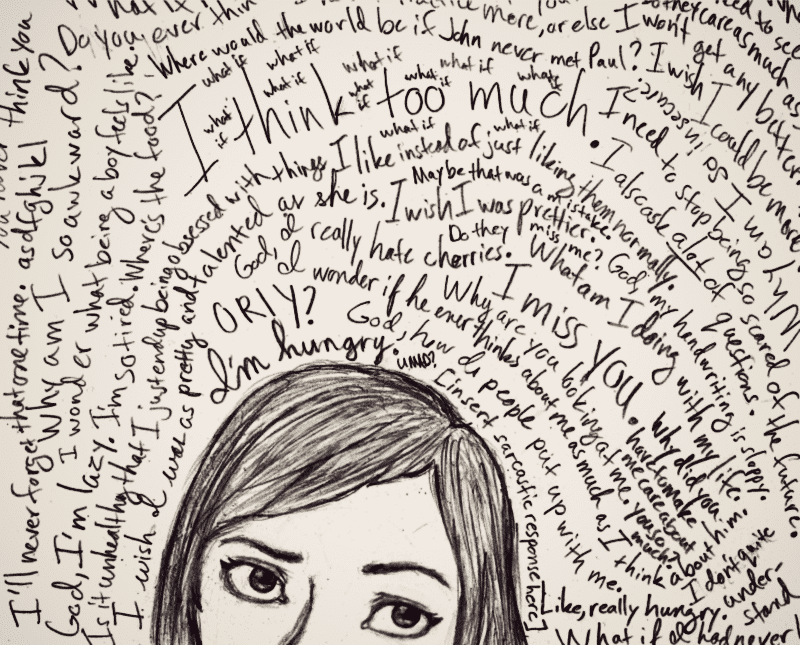 I'll never forget that one time. asdfghjkl
you never think you
God, I'm lazy. Why am I so awkward? Do you ever think
I wonder what being a boy feels like.
Is it unhealthy that I I'm so tired. Where's the food?
I just end up being obsessed with things I like instead of just liking them normally.
I wish I was as pretty and talented as she is. I wish I was prettier.
What if
practice more, or else I won't get any better
so they care as much as
need to see
Where would the world be if John never met Paul? I wish I could be more
what if what if what if what if
what if what if what if what if what if
what if
what if what if
I think too much. I need to stop being so scared of the future.
Why am I so insecure?
I also ask a lot of questions.
Maybe that was a mistake.
Do they miss me?
God, my handwriting is sloppy.
God, I really hate cherries. What am I doing with my life.
I wonder if he ever thinks about me as much as I think about him.
I miss you.
Why did you have to make me care about you so much?
ORLY?
Why are you looking at me.
God, how do people put up with me.
I'm hungry.
umad?
[insert sarcastic response here]
I don't quite understand
Like, really hungry.
What if I had never